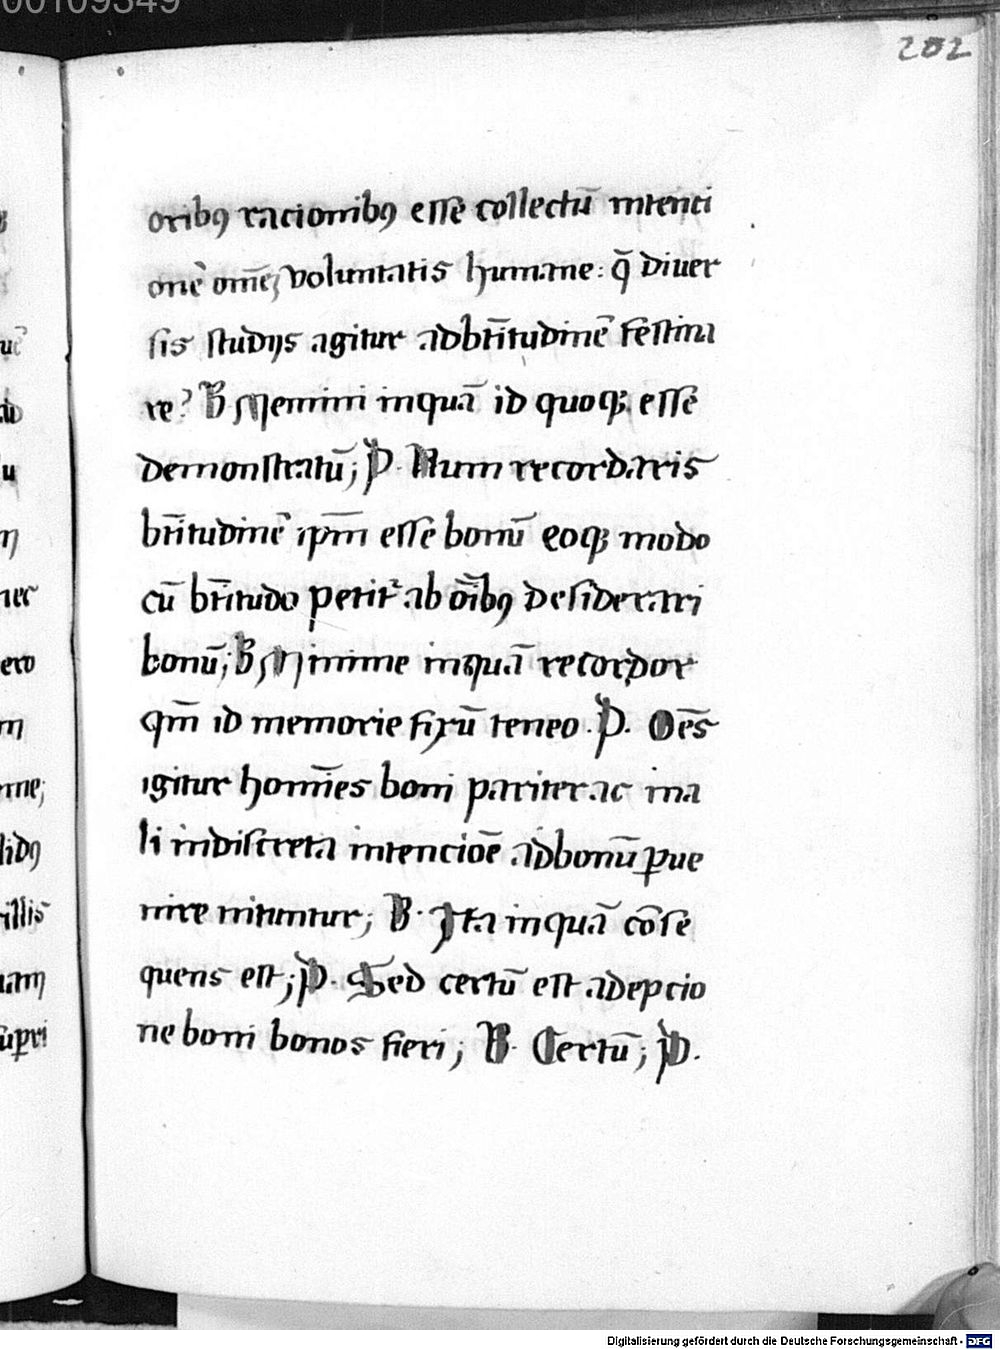 00109349
202
oribꝯ racionibꝯ esse collectū intenci
onē om̄eꝫ voluntatis humane: q̄ diuer
sis studijs agitur adbt̄itudinē festina
re? B Memini inquā id quoqꝫ esse
demonstratū; P. Num recordaris
bt̄itudinē ip̄m esse bonū eoqꝫ modo
cū bt̄itudo petit᷑ ab oı̄bꝯ desiderari
bonū; B Minime inquā recordor
qm̄ id memorie fixū teneo. P. Oēs
igitur homīes boni pariter ac ma
li indiscreta intencioē adbonū ꝑue
nire nituntur; B. Ita inquā cōse
quens est; P. Sed certū est adepcio
ne boni bonos fieri; B. Certū; P.
Digitalisierung gefördert durch die Deutsche Forschungsgemeinschaft - DFG